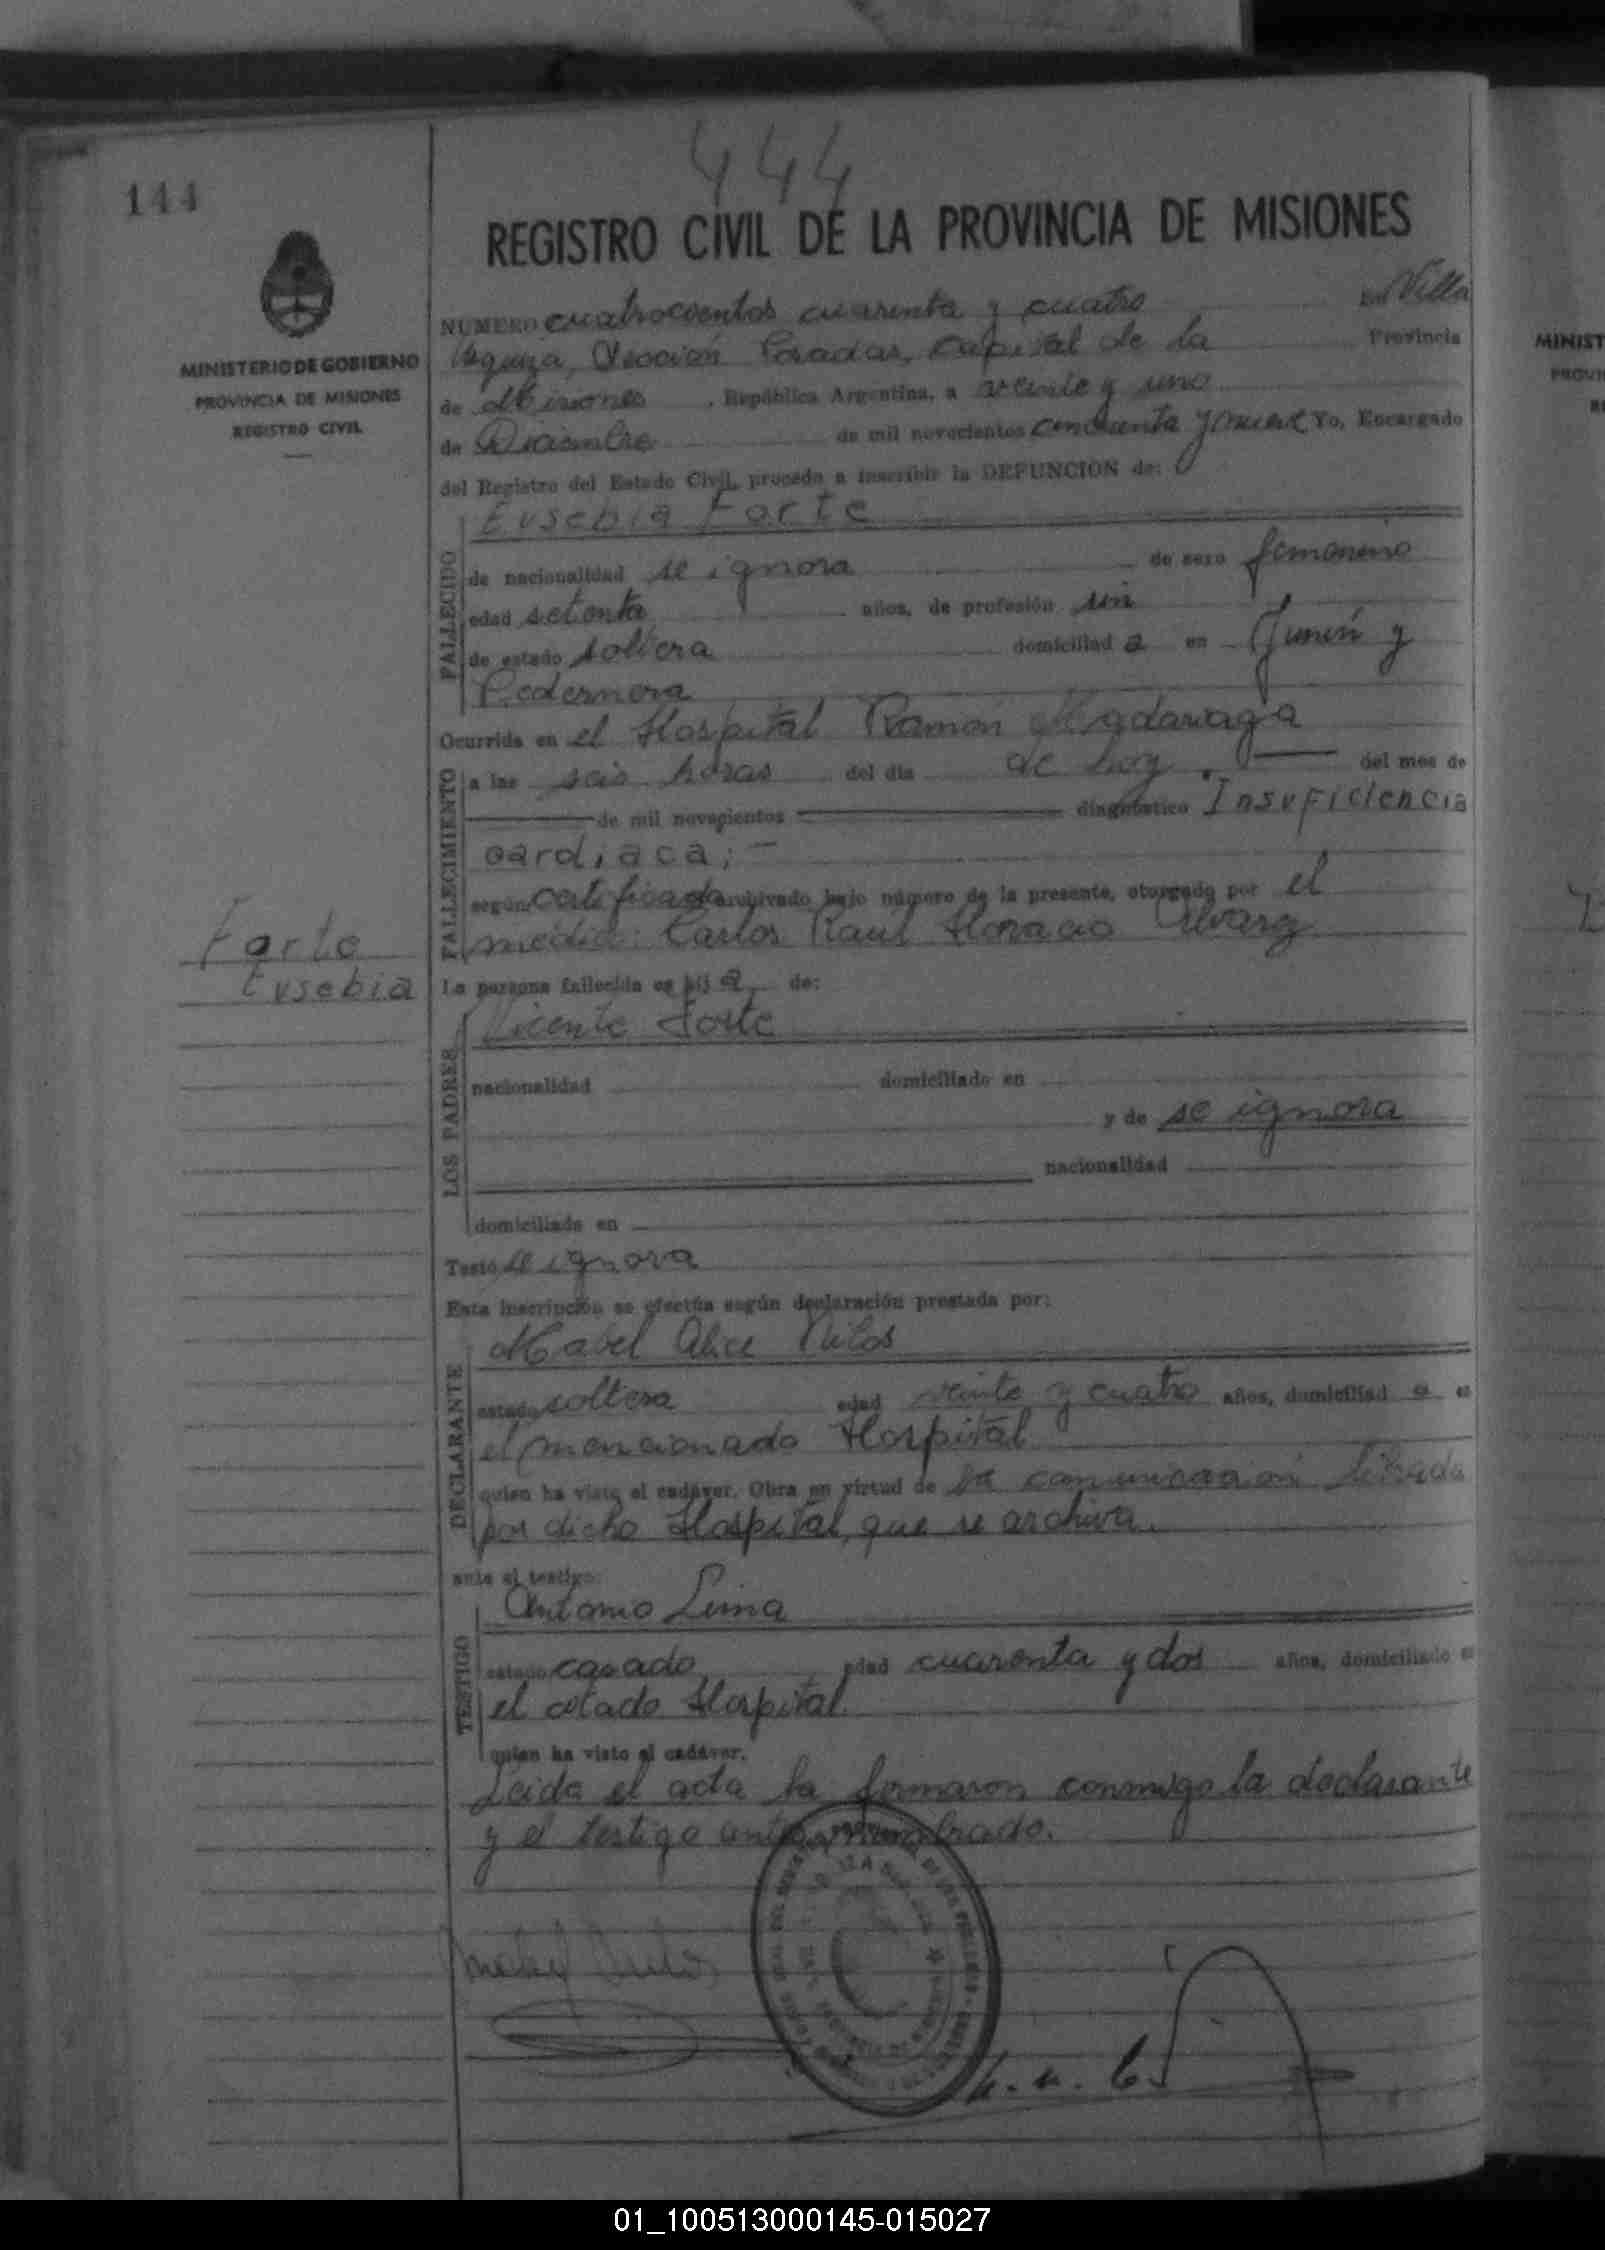 144
444
REGISTRO CIVIL DE LA PROVINCIA DE MISIONES
MINISTERIO DE GOBIERNO
PROVINCIA DE MISIONES
REGISTRO CIVIL
NUMERO cuatrocientos cuarenta y cuatro En Villa
Urquiza, Sección Posadas, capital de la Provincia
de Misiones, República Argentina, a veinte y uno
de Diciembre de mil novecientos cincuenta y nueve Yo, Encargado
del Registro del Estado Civil, procedo a inscribir la DEFUNCION de:
Eusebia Forte
FALLECIDO
de nacionalidad se ignora de sexo femenino
edad setenta años, de profesión sin
de estado soltera domiciliad a en Junín y
Pedernera
Ocurrida en el Hospital Ramón Madariaga
FALLECIMIENTO
a las seis horas del dia de hoy. del mes de
de mil novecientos diagnóstico Insuficiencia
cardiaca;-
según certificado archivado bajo número de la presente, otorgado por el
médico: Carlos Raul Horacio Alvarez
Forte
Eusebia
La persona fallecida es hij a de:
LOS PADRES
Vicente Forte
nacionalidad domiciliado en
y de se ignora
nacionalidad
domiciliada en
Testó se ignora
Esta inscripción se efectúa según declaración prestada por:
DECLARANTE
Mabel Alice
estado soltera edad veinte y cuatro años, domiciliad a en
el mencionado Hospital
quien ha visto el cadáver. Obra en virtud de la comunicación librada
por dicho Hospital, que se archiva.
ante el testigo:
TESTIGO
Antonio Lima
estado casado edad cuarenta y dos años, domiciliado en
el citado Hospital
quien ha visto el cadáver.
Leida el acta la firmaron conmigo la declarante
y el testigo antes nombrado.
MINIST
01_100513000145-015027